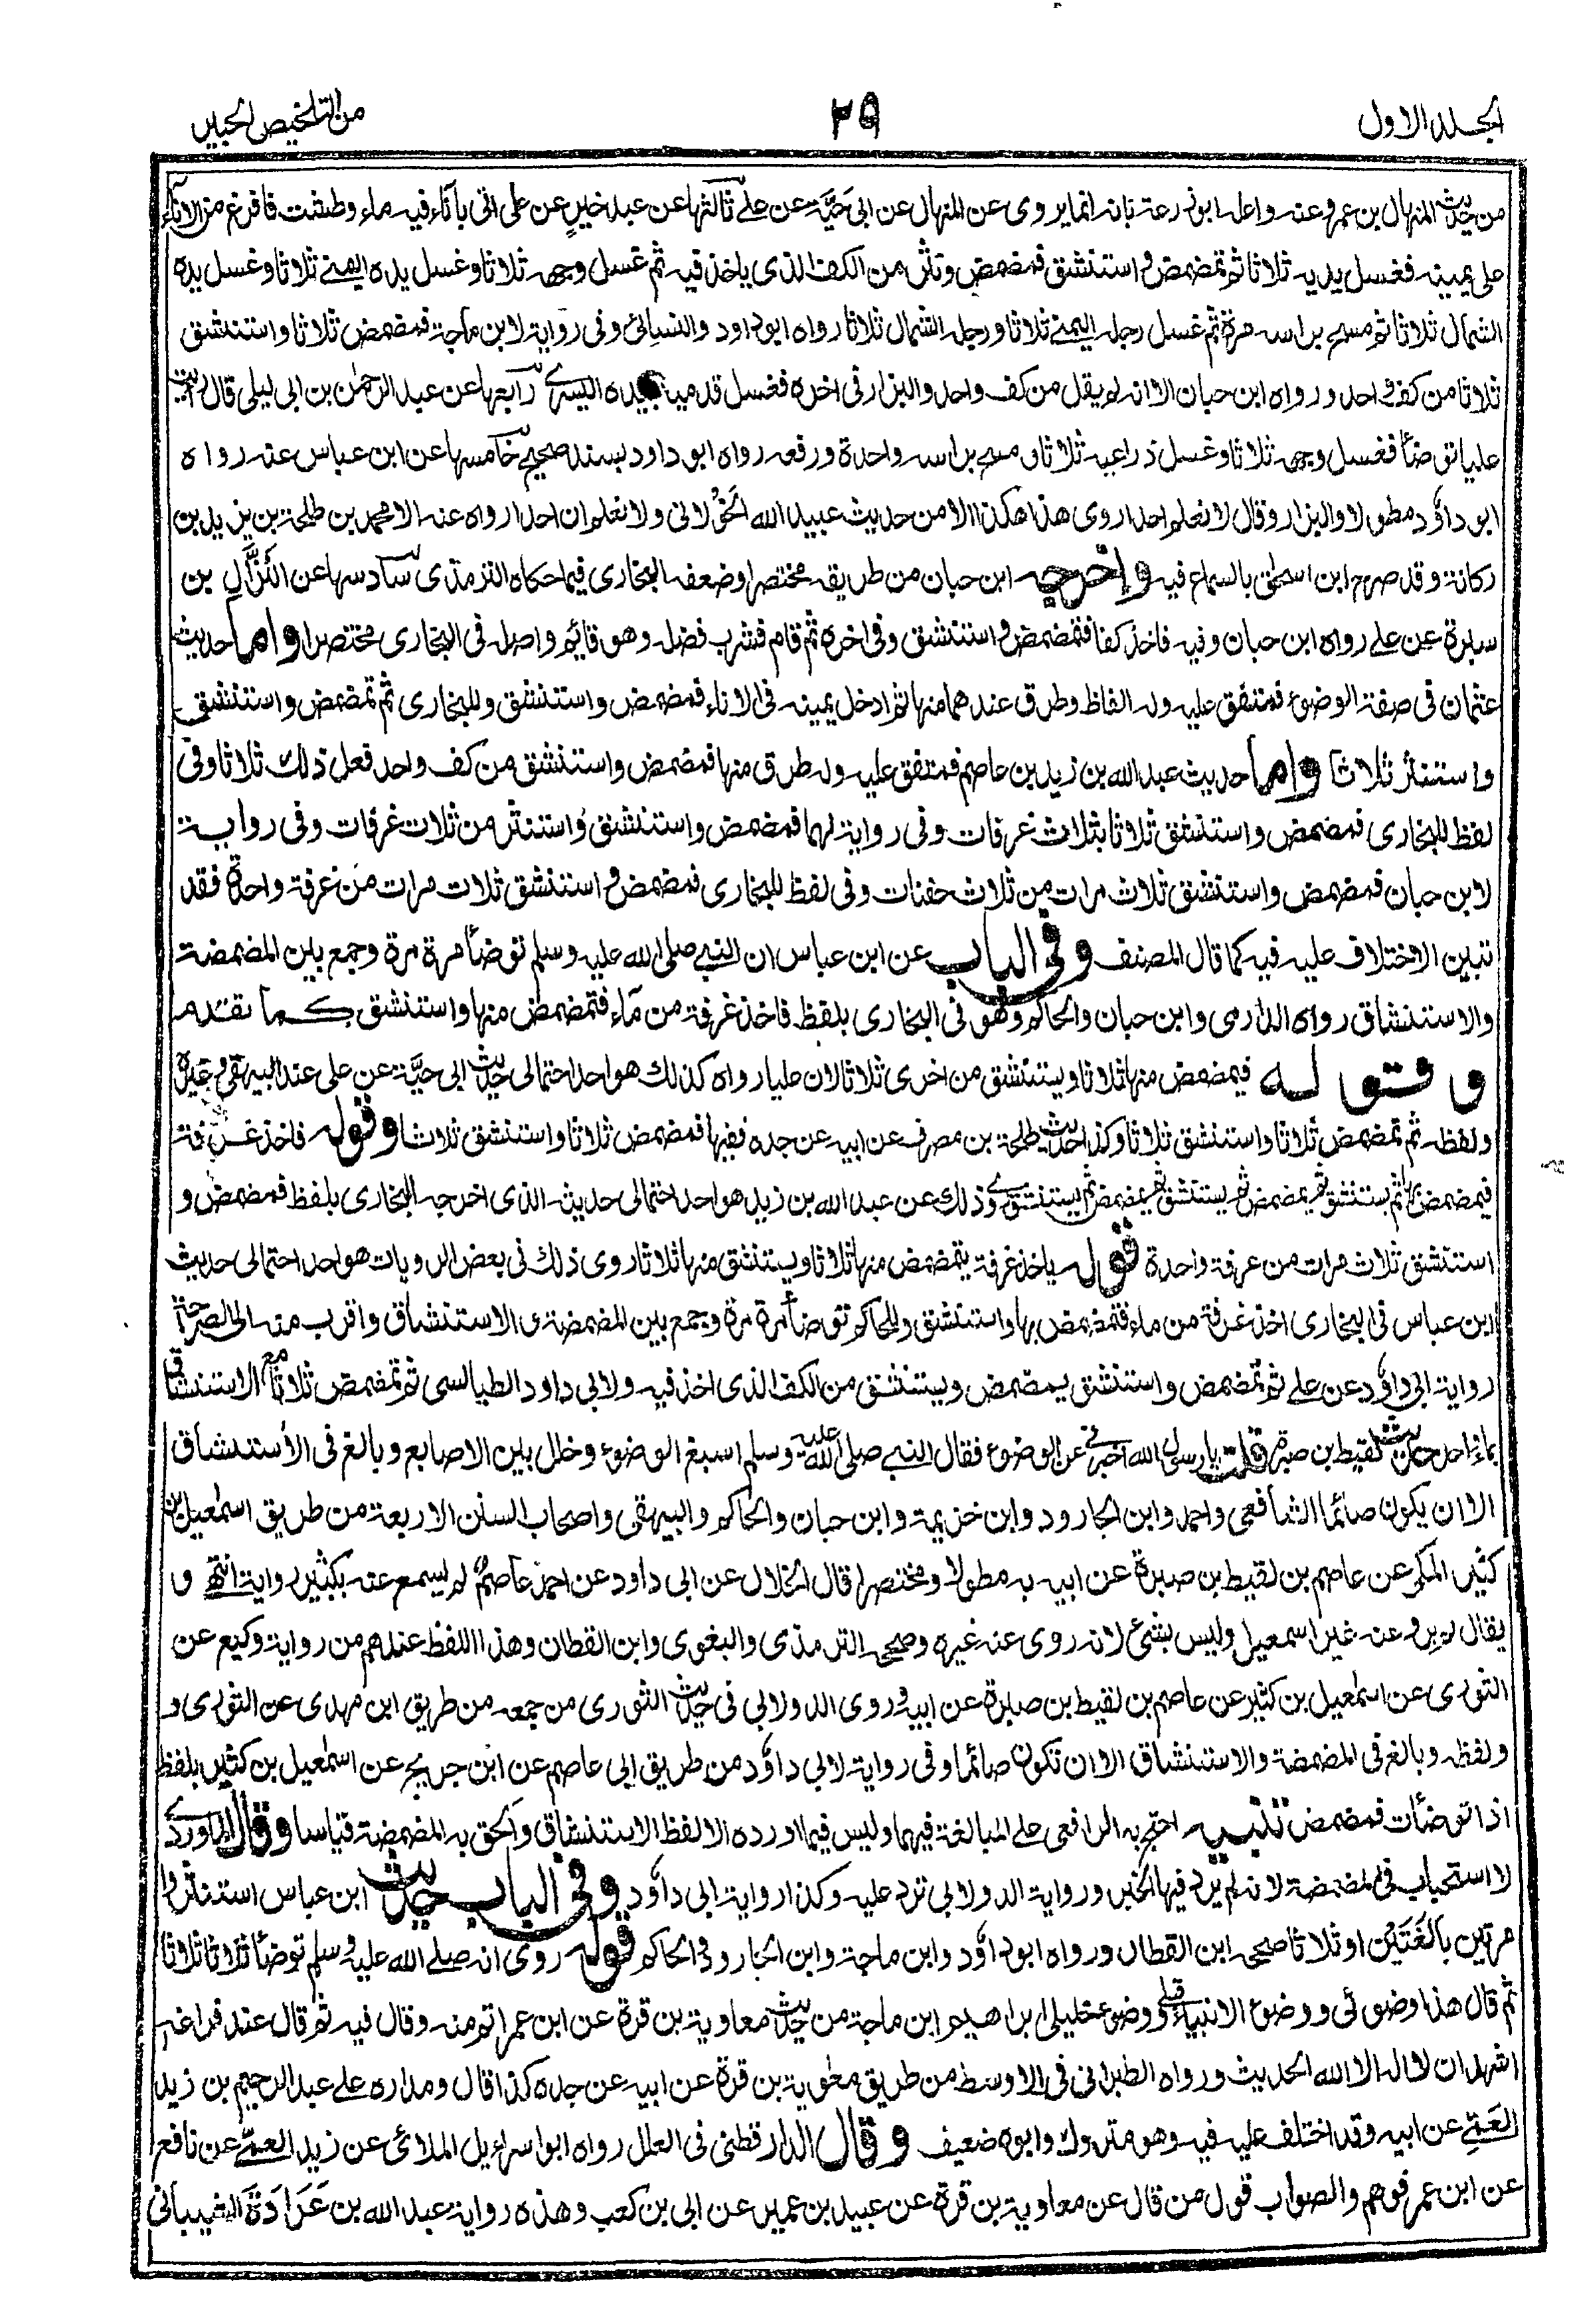 الجلد الاول
٢٩
من التلخيص الحبير
من حديث المنهال بن عمرو عنه واعله ابو زرعة بانه انما يروى عن المنهال عن ابى حَيَّة عن على ثالثها عن عبد خير عن على اتى باناء فيه ماء وطست فافرغ من الاناء
على يمينه فغسل يديه ثلاثا ثم تمضمض واستنشق فمضمض ونثر من الكف الذى ياخذ فيه ثم غسل وجهه ثلاثا وغسل يده اليمنى ثلاثا وغسل يده
الشمال ثلاثا ثم مسح براسه مرة ثم غسل رجله اليمنى ثلاثا ورجله الشمال ثلاثا رواه ابو داود والنسائى وفى رواية لابن ماجة فمضمض ثلاثا واستنشق
ثلاثا من كف واحد ورواه ابن حبان الا انه لم يقل من كف واحد والبزار فى اخره فغسل قدميه بيده اليسرى رابعها عن عبد الرحمن بن ابى ليلى قال رايت
عليا توضأ فغسل وجهه ثلاثا وغسل ذراعيه ثلاثا ومسح براسه واحدة ورفعه رواه ابو داود بسند صحيح خامسها عن ابن عباس عنه رواه
ابو داؤد مطولا والبزار وقال لا نعلم احدا روى هذا هكذا الا من حديث عبيد الله الخَوْلانى ولا نعلم ان احدا رواه عنه الا محمد بن طلحة بن يزيد بن
ركانة وقد صرح ابن اسحق بالسماع فيه واخرجه ابن حبان من طريقه مختصرا وضعفه البخارى فيما حكاه الترمذى سادسها عن النزَّال بن
سبرة عن على رواه ابن حبان وفيه فاخذ كفا فتمضمض واستنشق وفى اخره ثم قام فشرب فضله وهو قائم واصله فى البخارى مختصرا واما حديث
عثمان فى صفة الوضوء فمتفق عليه وله الفاظ وطرق عندهما منها ثم ادخل يمينه فى الاناء فمضمض واستنشق وللبخارى ثم تمضمض واستنشق
واستنثر ثلاثا واما حديث عبد الله بن زيد بن عاصم فمتفق عليه وله طرق منها فمضمض واستنشق من كف واحد فعل ذلك ثلاثا وفى
لفظ للبخارى فمضمض واستنشق ثلاثا بثلاث غرفات وفى رواية لهما فمضمض واستنشق واستنثر من ثلاث غرفات وفى رواية
لابن حبان فمضمض واستنشق ثلاث مرات من ثلاث حفنات وفى لفظ للبخارى فمضمض واستنشق ثلاث مرات من غرفة واحدة فقد
تبين الاختلاف عليه فيه كما قال المصنف وفى الباب عن ابن عباس ان النبى صلى الله عليه وسلم توضأ مرة مرة وجمع بين المضمضة
والاستنشاق رواه الدارمى وابن حبان والحاكم وهو فى البخارى بلفظ فاخذ غرفة من ماء فتمضمض منها واستنشق كما تقدم
وقوله فيمضمض منها ثلاثا ويستنشق من اخرى ثلاثا لان عليا رواه كذلك هو احد احتمالى حديث ابى حيَّة عن على عند البيهقى وغيره
ولفظه ثم تمضمض ثلاثا واستنشق ثلاثا وكذا حديث طلحة بن مصرف عن ابيه عن جده ففيها فمضمض ثلاثا واستنشق ثلاثا وقوله فاخذ غرفة
فيمضمض بها ثم يستنشق ثم يمضمض ثم يستنشق ثم يمضمض ثم يستنشق روى ذلك عن عبد الله بن زيد هو احد احتمالى حديثه الذى اخرجه البخارى بلفظ فمضمض و
استنشق ثلاث مرات من غرفة واحدة قوله ياخذ غرفة يتمضمض منها ثلاثا ويستنشق منها ثلاثا روى ذلك فى بعض الرويات هو احد احتمالى حديث
ابن عباس فى البخارى اخذ غرفة من ماء فتمضمض بها واستنشق وللحاكم توضأ مرة مرة وجمع بين المضمضة والاستنشاق واقرب منه الى الصراحة
رواية ابى داؤد عن على ثم تمضمض واستنشق يمضمض ويستنشق من الكف الذى اخذ فيه ولابى داود الطيالسى ثم تمضمض ثلاثا مع الاستنشاق
بماء احد حديث لقيط بن صبرة قلت يا رسول الله اخبرنى عن الوضوء فقال النبى صلى الله عليه وسلم اسبغ الوضوء وخلل بين الاصابع وبالغ فى الاستنشاق
الا ان يكون صائما الشافعى واحمد وابن الجارود وابن خزيمة وابن حبان والحاكم والبيهقى واصحاب السنن الاربعة من طريق اسمعيل بن
كثير المكى عن عاصم بن لقيط بن صبرة عن ابيه به مطولا ومختصرا قال الخلال عن ابى داود عن احمد عاصم لم يسمع عنه بكثير رواية انتهى و
يقال لم يرو عنه غير اسمعيل وليس بشئ لانه روى عنه غيره وصححه الترمذى والبغوى وابن القطان وهذا اللفظ عندهم من رواية وكيع عن
الثورى عن اسمعيل بن كثير عن عاصم بن لقيط بن صبرة عن ابيه وروى الدولابى فى حديث الثورى من جمعه من طريق ابن مهدى عن الثورى و
ولفظه وبالغ فى المضمضة والاستنشاق الا ان تكون صائما وفى رواية لابى داؤد من طريق ابى عاصم عن ابن جريج عن اسمعيل بن كثير بلفظ
اذا توضأت فمضمض تنبيه احتج به الرافعى على المبالغة فيهما وليس فيما اورده الا لفظ الاستنشاق والحق به المضمضة قياسا وقال الماوردى
لا استحباب فى المضمضة لانه لم يرد فيها الخبر ورواية الدولابى ترد عليه وكذا رواية ابى داؤد وفى الباب حديث ابن عباس استنثروا
مرتين بالغتين او ثلاثا صححه ابن القطان ورواه ابو داؤد وابن ماجة وابن الجارود والحاكم قوله روى انه صلى الله عليه وسلم توضأ ثلاثا ثلاثا
ثم قال هذا وضوئى ووضوء الانبياء قبلى ووضوء خليلى ابراهيم ابن ماجة من حديث معاوية بن قرة عن ابن عمر اتم منه وقال فيه ثم قال عند فراغه
اشهد ان لا اله الا الله الحديث ورواه الطبرانى فى الاوسط من طريق معوية بن قرة عن ابيه عن جده كذا قال ومداره على عبد الرحيم بن زيد
العَمّى عن ابيه وقد اختلف عليه فيه وهو متروك وابوه ضعيف وقال الدارقطنى فى العلل رواه ابو اسرائيل الملائى عن زيد العمّى عن نافع
عن ابن عمر فوهم والصواب قول من قال عن معاوية بن قرة عن عبيد بن عمير عن ابى بن كعب وهذه رواية عبد الله بن عَرَادَة الشيبانى